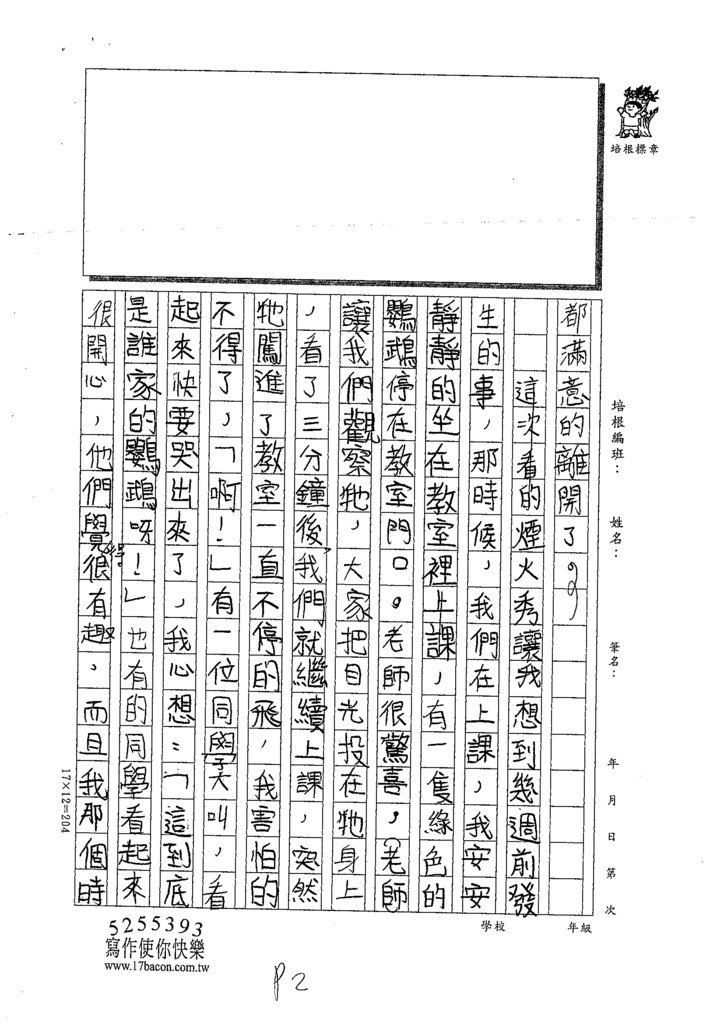 培根標章
培根編班：
姓名：
筆名：
年月日第次
學校
年級
都滿意的離開了。
這次看的煙火秀讓我想到幾週前發
生的事，那時候，我們在上課，我安安
靜靜的坐在教室裡上課，有一隻綠色的
鸚鵡停在教室門口。老師很驚喜，老師
讓我們觀察牠，大家把目光投在牠身上
，看了三分鐘後，我們就繼續上課，突然
牠闖進了教室一直不停的飛，我害怕的
不得了，「啊！」有一位同學大叫，看
起來快要哭出來了，我心想：「這到底
是誰家的鸚鵡呀！」也有的同學看起來
很開心，他們覺得很有趣，而且我那個時
17×12=204
5255393
寫作使你快樂
www.17bacon.com.tw
P2